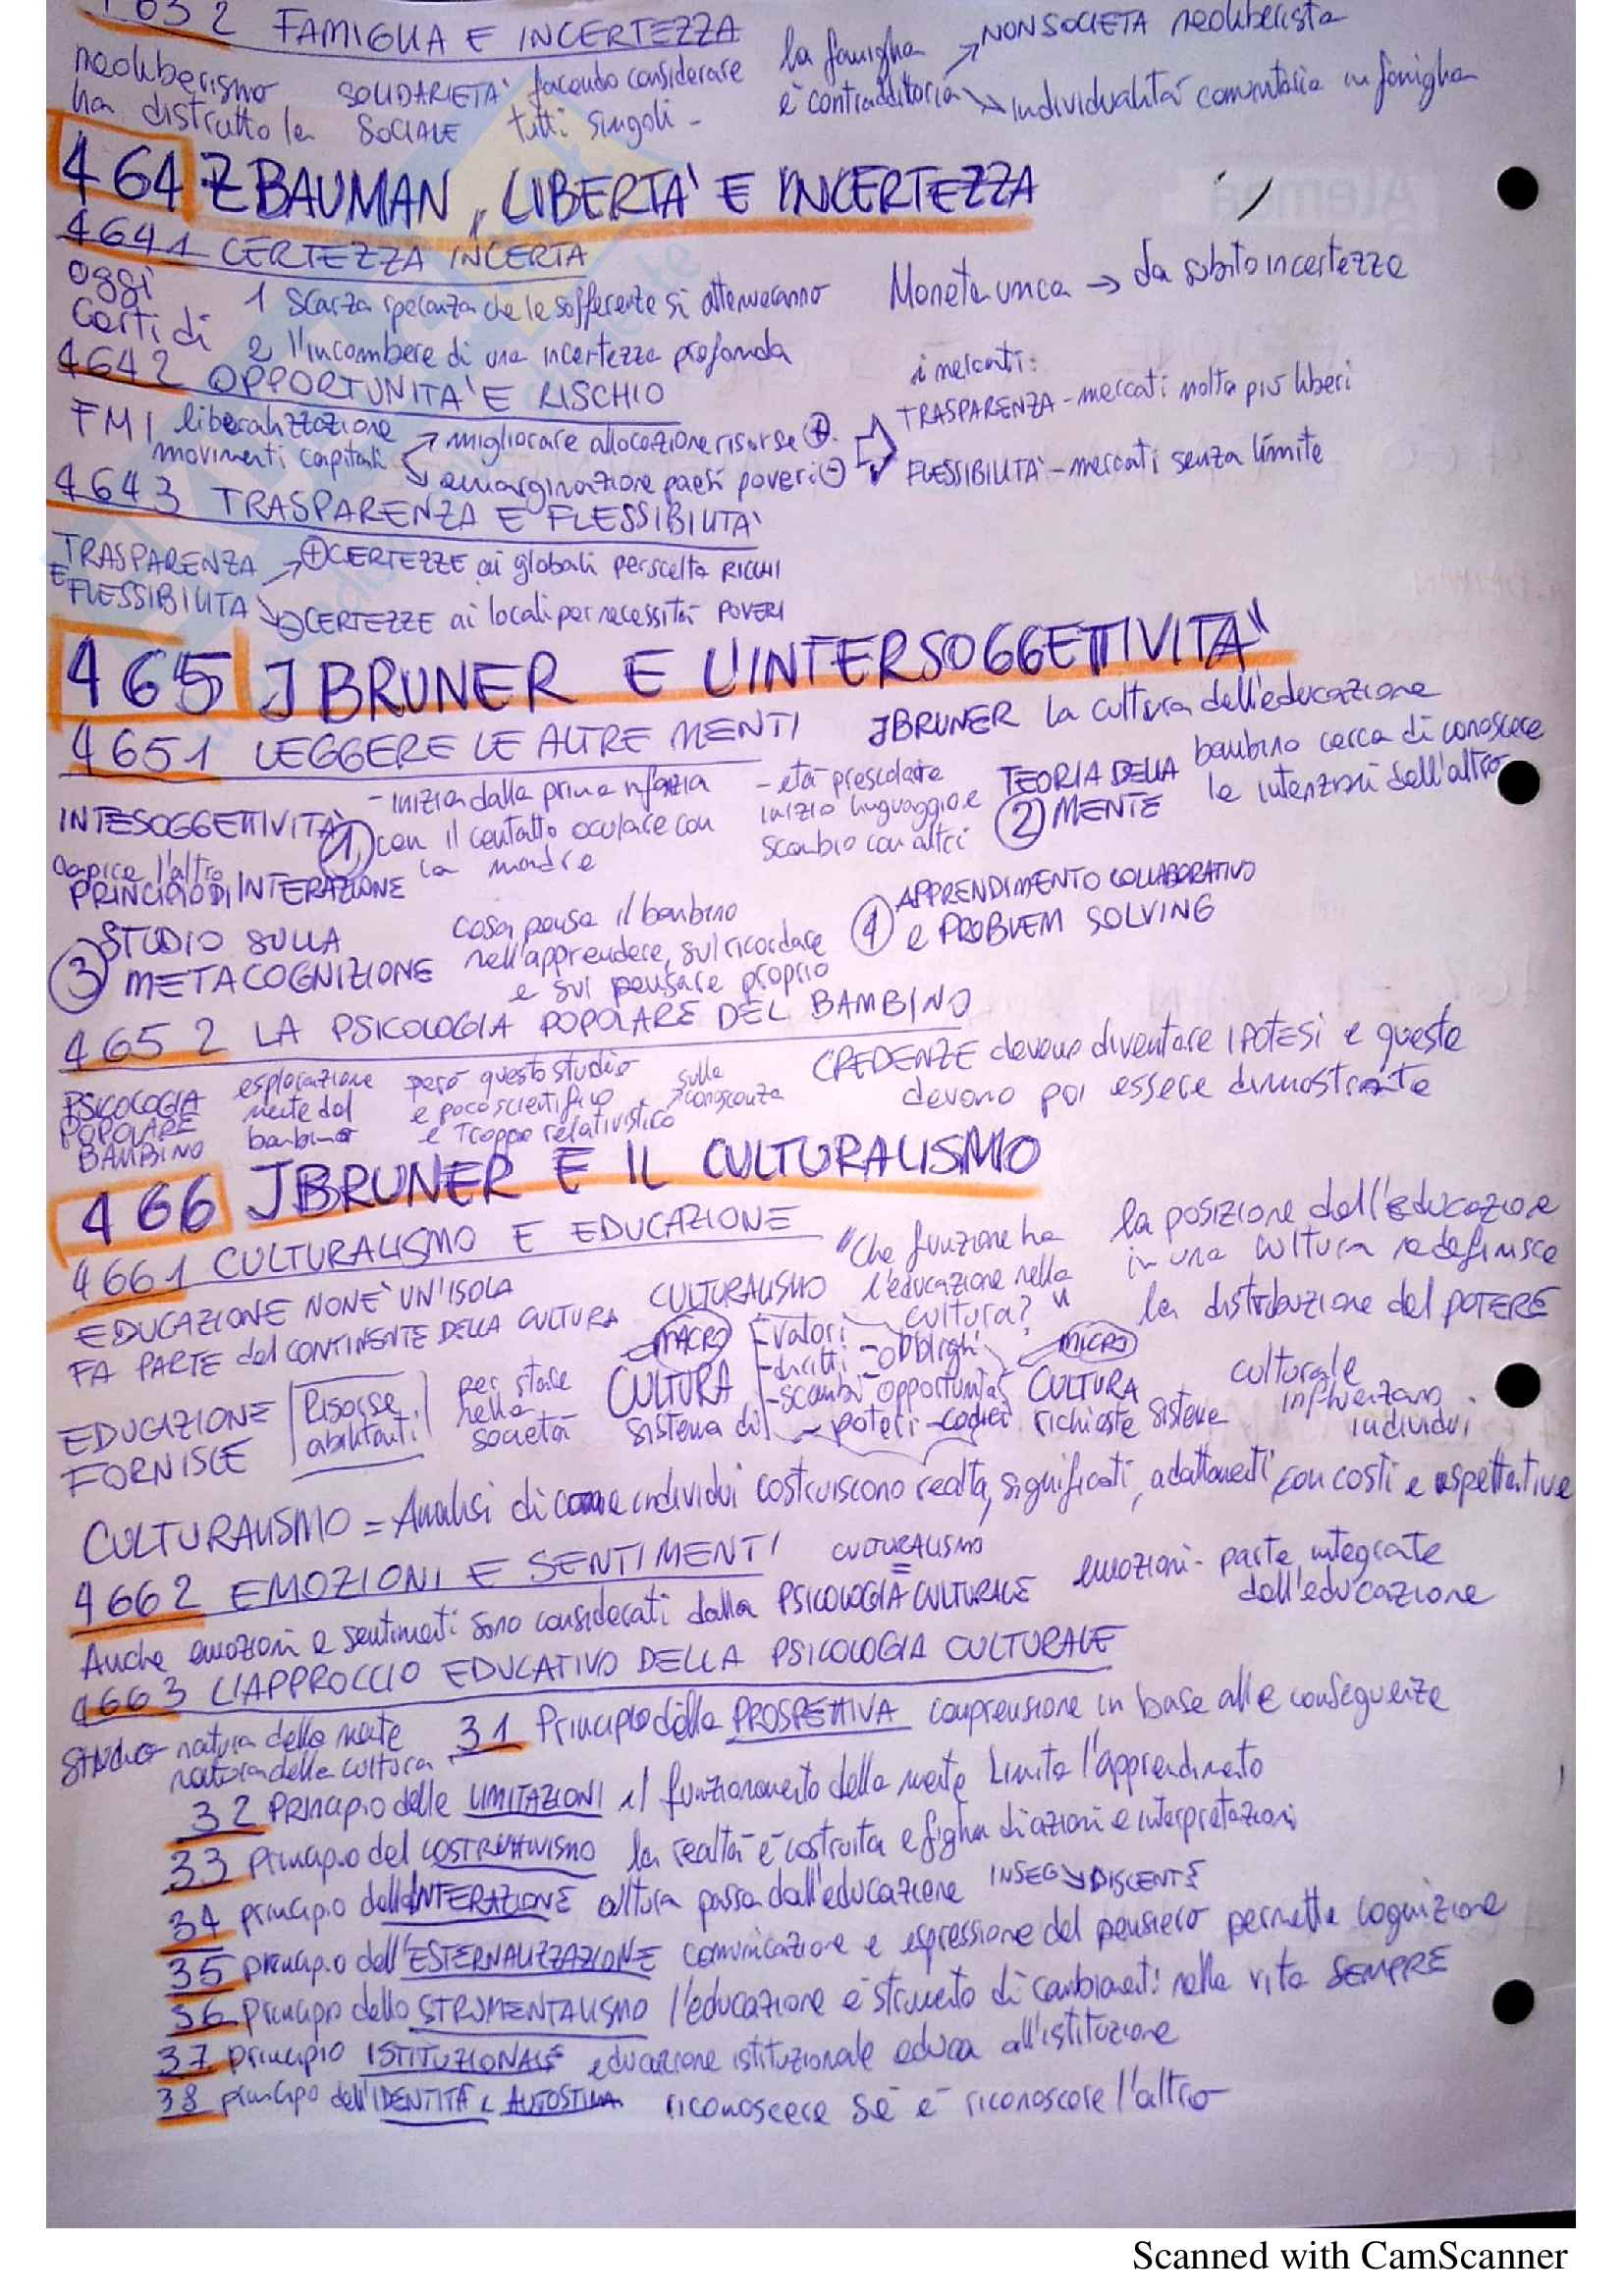 4632 FAMIGLIA E INCERTEZZA
neoliberismo ha distrutto la SOLIDARIETA' SOCIALE facendo considerare tutti singoli -
la famiglia è contradditoria
NON SOCIETÀ neoliberista
individualità comunitaria in famiglia
464 Z BAUMAN, LIBERTA' E INCERTEZZA
4641 CERTEZZA INCERTA
Oggi Certi di
1 scarsa speranza che le sofferenze si attenueranno
2 l'incombere di una incertezza profonda
Moneta unica → da subito incertezze
4642 OPPORTUNITA' E RISCHIO
FMI liberalizzazione movimenti capitali
migliorare allocazione risorse +
emarginazione paesi poveri -
i mercati:
TRASPARENZA - mercati molto più liberi
FLESSIBILITÀ - mercati senza limite
4643 TRASPARENZA E FLESSIBILITA'
TRASPARENZA E FLESSIBILITA
+ CERTEZZE ai globali per scelta RICCHI
- CERTEZZE ai locali per necessità POVERI
465 J BRUNER E L'INTERSOGGETTIVITA'
4651 LEGGERE LE ALTRE MENTI
JBRUNER la cultura dell'educazione
INTESOGGETTIVITA' 1
capire l'altro
PRINCIPIO DI INTERAZIONE
- inizia dalla prima infazia con il contatto oculare con la madre
- età prescolare inizio linguaggio e scambio con altri
2 TEORIA DELLA MENTE
bambino cerca di conoscere le intenzioni dell'altro
3 STUDIO SULLA METACOGNIZIONE
cosa pensa il bambino nell'apprendere, sul ricordare e sul pensare proprio
4 APPRENDIMENTO COLLABORATIVO e PROBLEM SOLVING
4652 LA PSICOLOGIA POPOLARE DEL BAMBINO
PSICOLOGIA POPOLARE BAMBINO
esplorazione mente del bambino
però questo studio e poco scientifico e troppo relativistico
sulla conoscenza
CREDENZE devono diventare IPOTESI e queste devono poi essere dimostrate
466 JBRUNER E IL CULTURALISMO
4661 CULTURALISMO E EDUCAZIONE
EDUCAZIONE NON E' UN'ISOLA
FA PARTE del CONTINENTE DELLA CULTURA
CULTURALISMO "Che funzione ha l'educazione nella cultura?"
la posizione dell'educazione in una cultura redefinisce la distribuzione del POTERE
EDUCAZIONE FORNISCE
Risorse abilitanti
per stare nella società
MACRO CULTURA sistema di
- valori - obblighi
- diritti
- scambi opportunità
- poteri - codici
MICRO CULTURA
richieste sistema culturale influenzano individui
CULTURALISMO = Analisi di come individui costruiscono realtà, significati, adattamenti con costi e aspettative
4662 EMOZIONI E SENTIMENTI
Anche emozioni e sentimenti sono considerati dalla PSICOLOGIA CULTURALE
CULTURALISMO =
emozioni - parte integrate dell'educazione
4663 L'APPROCCIO EDUCATIVO DELLA PSICOLOGIA CULTURALE
STUDIO natura della mente
natura della cultura
31 Principio della PROSPETTIVA comprensione in base alle conseguenze
32 Principio delle LIMITAZIONI il funzionamento della mente limita l'apprendimento
33 Principio del COSTRUTTIVISMO la realtà è costruita e figlia di azioni e interpretazioni
34 principio dell'INTERAZIONE cultura passa dall'educazione INSEG DISCENTE
35 principio dell'ESTERNALIZZAZIONE comunicazione e espressione del pensiero permette cognizione
36 Principio dello STRUMENTALISMO l'educazione è strumento di cambiamenti nella vita SEMPRE
37 principio ISTITUZIONALE educazione istituzionale educa all'istituzione
38 principio dell'IDENTITÀ E AUTOSTIMA riconoscere sé è riconoscere l'altro
Scanned with CamScanner